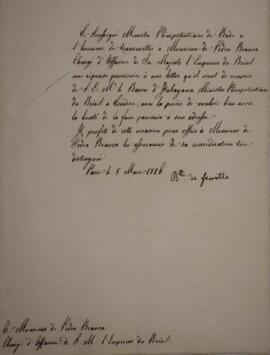 Le Soussigné Ministre Plénipotentiaire de Bade a
l'honneur de transmettre à Monsieur de Pedra Branca
Chargé d'Affaires de Sa Majesté l'Empereur du Brésil
une réponse provisoire à une lettre qu'il vient de recevoir
de S. E. Mr. le Baron d'Itabayana Ministre Plénipotentiaire
du Brésil à Londres, avec la prière de vouloir bien avoir
la bonté de la faire parvenir à son adresse.
Il profite de cette occasion pour offrir à Monsieur de
Pedra Branca les assurances de sa considération très
distinguée
Paris le 8 Mars 1826
Bon de
A Monsieur de Pedra Branca
Chargé d'Affaires de S. M. l'Empereur du Brésil.